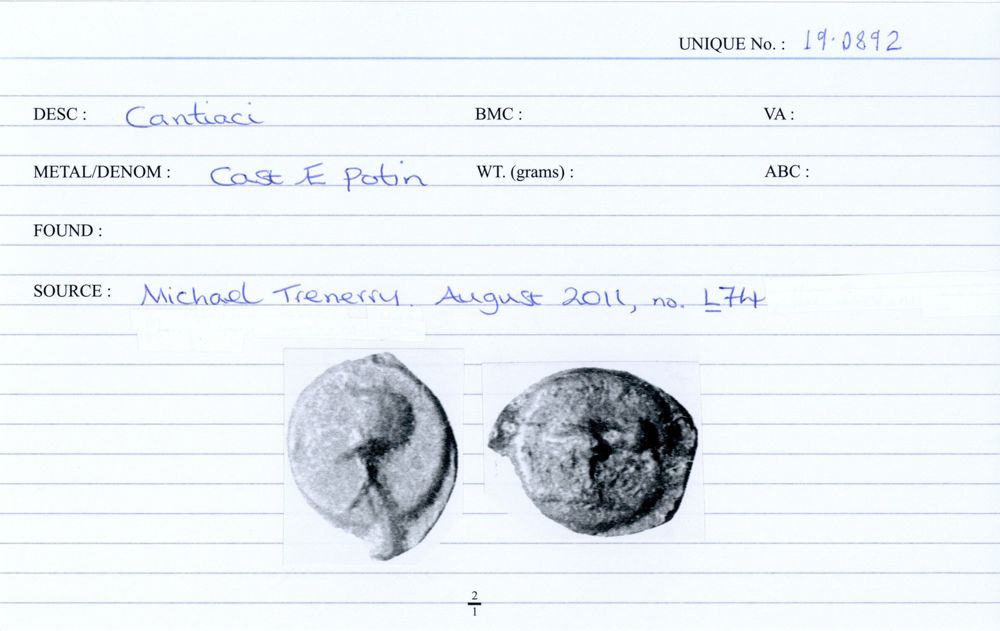 UNIQUE No. : 19·0892
DESC : Cantiaci BMC : VA :
METAL/DENOM : Cast Æ Potin WT. (grams) : ABC :
FOUND :
SOURCE : Michael Trenerry. August 2011, no. L74
2
1